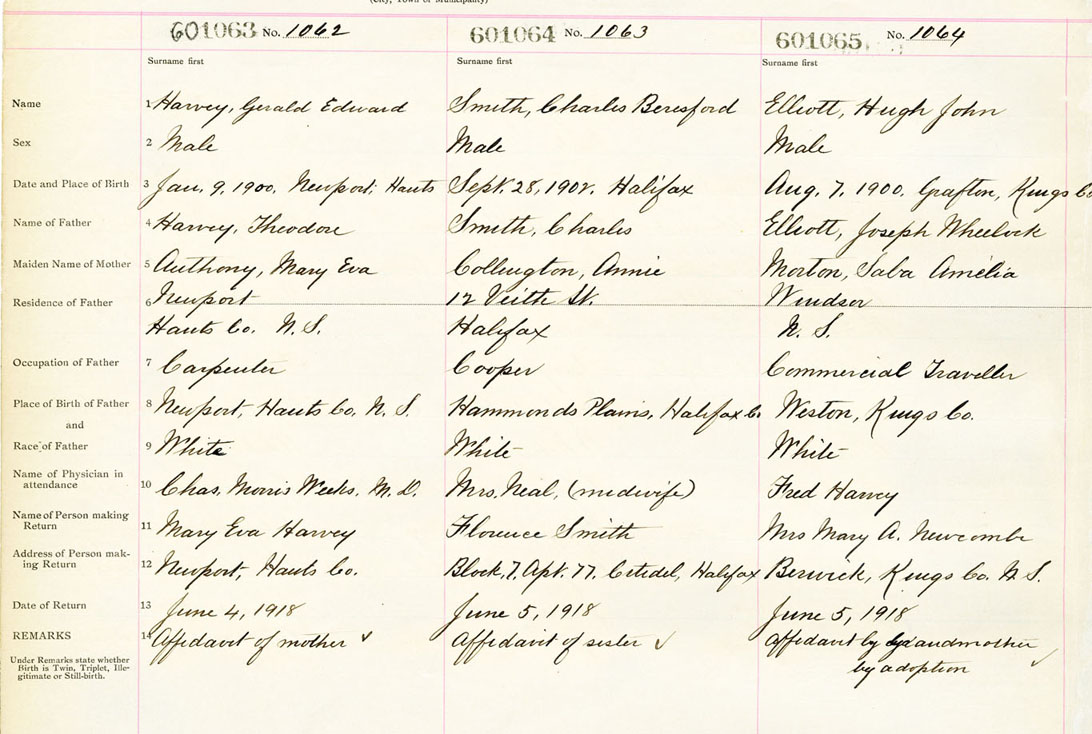 (City, Town or Municipality)
601063 No. 1062 601064 No. 1063 601065 No. 1064
Surname first Surname first Surname first
Name 1 Harvey, Gerald Edward Smith, Charles Beresford Elliott, Hugh John
Sex 2 Male Male Male
Date and Place of Birth 3 Jan. 9, 1900. Newport, Hants Sept. 28, 1902. Halifax Aug. 7, 1900. Grafton, Kings Co
Name of Father 4 Harvey, Theodore Smith, Charles Elliott, Joseph Wheelock
Maiden Name of Mother 5 Anthony, Mary Eva Collington, Annie Morton, Saba Amelia
Residence of Father 6 Newport 12 Veith St. Windsor
Hants Co. N.S. Halifax N.S.
Occupation of Father 7 Carpenter Cooper Commercial Traveller
Place of Birth of Father 8 Newport, Hants Co. N.S. Hammonds Plains, Halifax Co Weston, Kings Co.
and
Race of Father 9 White White White
Name of Physician in
attendance 10 Chas. Morris Weeks, M.D. Mrs. Neal, (midwife) Fred Harvey
Name of Person making
Return 11 Mary Eva Harvey Florence Smith Mrs Mary A. Newcombe
Address of Person mak-
ing Return 12 Newport, Hants Co. Block, 7, Apt. 77. Citidel, Halifax Berwick, Kings Co. N.S.
Date of Return 13 June 4, 1918 June 5, 1918 June 5, 1918
REMARKS 14 Affidavit of mother ✓ Affidavit of sister ✓ Affidavit by grandmother
by adoption ✓
Under Remarks state whether
Birth is Twin, Triplet, Ille-
gitimate or Still-birth.